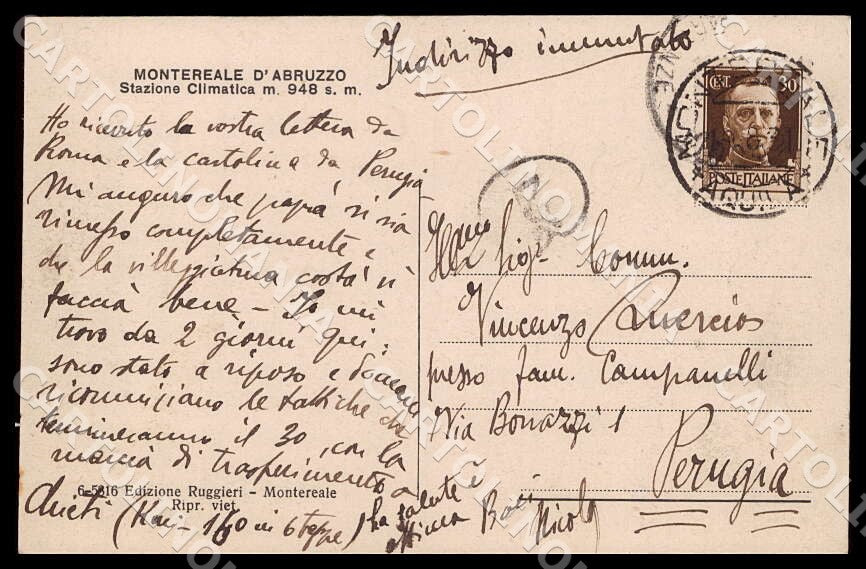 Indirizzo immutato
MONTEREALE D'ABRUZZO
Stazione Climatica m. 948 s. m.
Ho ricevuto la vostra lettera da
Roma e la cartolina da Perugia
Mi auguro che papà si sia
rimesso completamente e
che la villeggiatura costà vi
faccia bene - Io mi
trovo da 2 giorni qui:
sono stato a riposo e domani
ricominciano le tattiche che
termineranno il 30, con la
marcia di trasferimento a
6-5816 Edizione Ruggieri - Montereale
Ripr. viet.
Chieti (Km 160 in 6 tappe)
ha salute è
ottima Baci
Nicola
CENT. 30
POSTE ITALIANE
AQUILA
Ill.mo Sig. Comm.
Vincenzo
presso fam. Campanelli
Via Bonazzi 1
Perugia
CARTOLINOMANIA